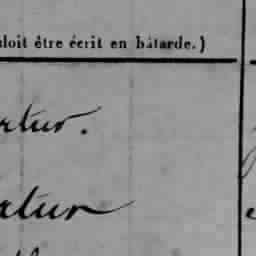 doit être écrit en bâtarde.)
rtur.
atur